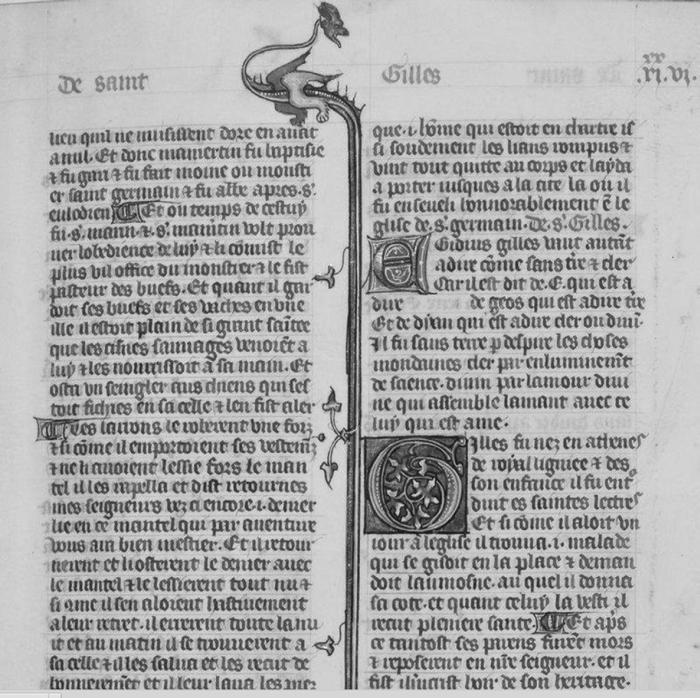 De saint
Gilles
.xi. vi.
xx
lieu quil ne nuisissent dore en auant
a nul. Et donc mamertin fu baptisie
& fu gari & fu fait moine ou mousti
er saint germain & fu abbe apres. s'.
eulodien Et ou temps de cestuy
fu. s'. marin. &. s'. mamtin volt prou
uer lobedience de luy & li comist le
plus vil office du monstier & le fist
pasteur des buefs. Et quant il gar
doit ses buefs et ses vaches en vne
ille il estoit plain de si grant saintee
que les cisnes sauuages venoient a
luy & les nourrissoit a sa main. Et
osta vn sengler aus chiens qui ses
toit fichies en sa celle & len fist aler
Les larrons le roberent vne foiz
& si come il emportoient ses vestemz
& ne li auoient lessie fors le man
tel il les rapella et dist retournes
mes seigneurs vez ci encore .i. denier
lie en ce mantel qui par auenture
vous aura bien mestier. Et il retour
nerent et li osterent le denier auec
le mantel & le lessierent tout nu &
si come il sen aloient hastiuement
a leur retret. il errerent toute la nu
it et au matin il se trouuerent a
sa celle & il les salua et les recut de
bonnerement et il leur laua les piez
que .i. home qui estoit en chartre is
si soudement les lians rompus &
vint tout quitte au corps et layda
a porter iusques a la cite la ou il
fu enseueli honnorablement en le
glise de. s'. germain. De. s'. Gilles.
Egidius gilles vaut autant
a dire come sans terre & cler
Car il est dit de. E. qui est a
dire de geos qui est a dire terre
Et de dyan qui est a dire cler ou diuin.
Il fu sans terre par despire les choses
mondaines cler par enluminement
de science. diuin par lamour diui
ne qui assemble lamant auec ce
luy qui est ame.
Gilles fu nez en athenes
de royal lignee & des
son enfance il fu ent
duit es saintes lectres
Et si come il aloit vn
iour a leglise il trouua. i. malade
qui se gisoit en la place & deman
doit laumosne. au quel il donna
sa cote. et quant celuy la vesti il
recut pleniere sante. Et aps
ce tantost ses parens furent mors
& reposerent en nre seigneur. et il
fist ihucrist hoir de son heritage.